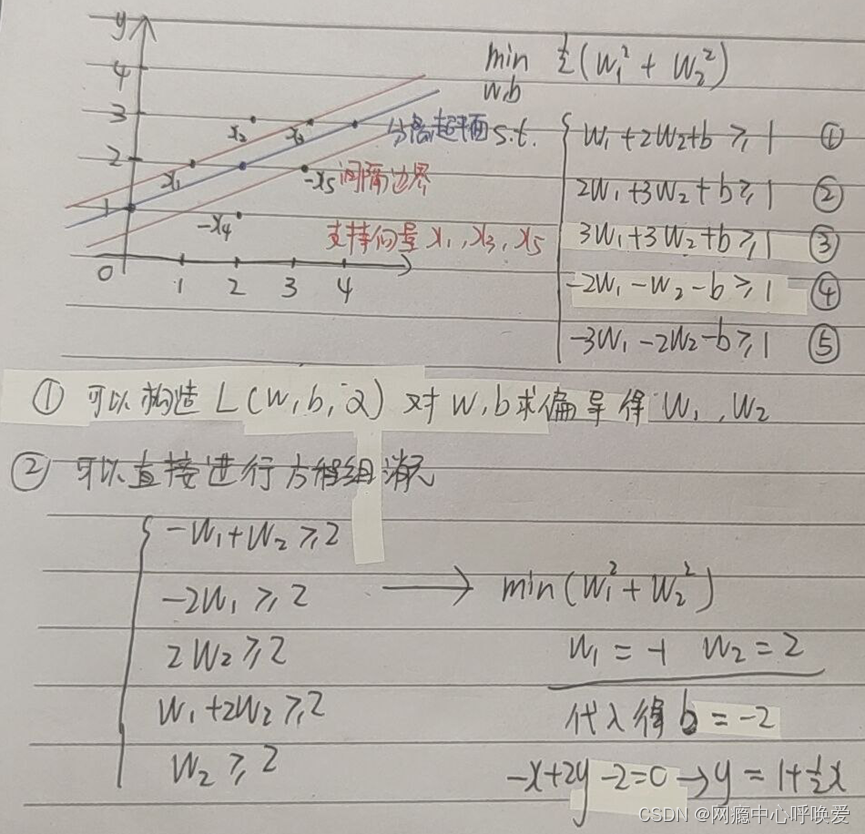 y
4
3
2
1
0
1 2 3 4
x₂
x₃
x₁
-x₅
-x₄
分离超平面
间隔边界
支持向量 x₁, x₃, x₅
min ½(w₁² + w₂²)
w,b
s.t.
w₁ + 2w₂ + b ≥ 1 ①
2w₁ + 3w₂ + b ≥ 1 ②
3w₁ + 3w₂ + b ≥ 1 ③
-2w₁ - w₂ - b ≥ 1 ④
-3w₁ - 2w₂ - b ≥ 1 ⑤
① 可以构造 L(w,b,α) 对 w,b 求偏导得 w₁, w₂
② 可以直接进行方程组消元
-w₁ + w₂ ≥ 2
-2w₁ ≥ 2
2w₂ ≥ 2
w₁ + 2w₂ ≥ 2
w₂ ≥ 2
→ min(w₁² + w₂²)
w₁ = -1 w₂ = 2
代入得 b = -2
-x+2y-2=0 → y = 1+½x
CSDN @网瘾中心呼唤爱